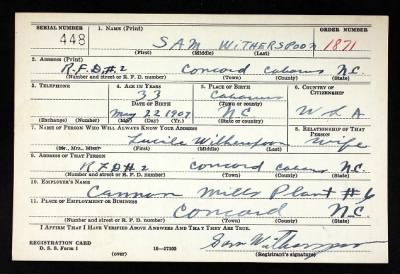 SERIAL NUMBER 1. NAME (Print) ORDER NUMBER
448 SAM WITHERSPOON 1871
(First) (Middle) (Last)
2. ADDRESS (Print)
R.F.D #2 Concord Cabarrus N.C.
(Number and street or R. F. D. number) (Town) (County) (State)
3. TELEPHONE 4. AGE IN YEARS 5. PLACE OF BIRTH 6. COUNTRY OF CITIZENSHIP
33 Cabarrus
DATE OF BIRTH (Town or county)
May 22 1907 N.C. U S A
(Exchange) (Number) (Mo.) (Day) (Yr.) (State or country)
7. NAME OF PERSON WHO WILL ALWAYS KNOW YOUR ADDRESS 8. RELATIONSHIP OF THAT PERSON
Lucile Witherspoon Wife
(Mr., Mrs., Miss) (First) (Middle) (Last)
9. ADDRESS OF THAT PERSON
RFD #2 Concord N.C.
(Number and street or R. F. D. number) (Town) (County) (State)
10. EMPLOYER'S NAME
Cannon Mills Plant #6
11. PLACE OF EMPLOYMENT OR BUSINESS
Concord N.C.
(Number and street or R. F. D. number) (Town) (County) (State)
I AFFIRM THAT I HAVE VERIFIED ABOVE ANSWERS AND THAT THEY ARE TRUE.
REGISTRATION CARD
D. S. S. Form 1 16—17105 Sam Witherspoon
(over) (Registrant's signature)